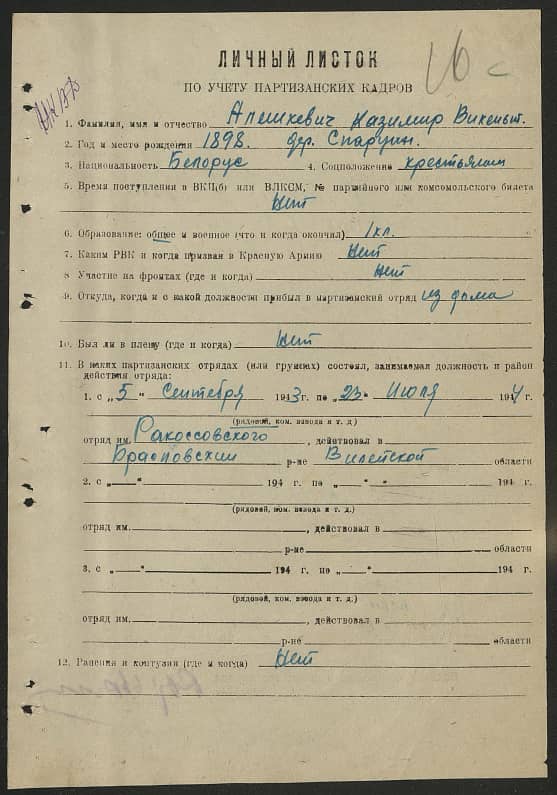 ЛИЧНЫЙ ЛИСТОК
ПО УЧЕТУ ПАРТИЗАНСКИХ КАДРОВ
1. Фамилия, имя и отчество Алешкевич Казимир Викеньт.
2. Год и место рождения 1898. дер. Спаруин.
3. Национальность Белорус 4. Соцположение крестьянин
5. Время поступления в ВКП(б) или ВЛКСМ, № партийного или комсомольского билета
Нет
6. Образование: общее и военное (что и когда окончил) 1кл.
7. Каким РВК и когда призван в Красную Армию Нет
8 Участие на фронтах (где и когда) Нет
9. Откуда, когда и с какой должности прибыл в партизанский отряд из дома
10. Был ли в плену (где и когда) Нет
11. В каких партизанских отрядах (или группах) состоял, занимаемая должность и район
действия отряда:
1. с „ 5 " Сентября 1943г. по „23" Июля 1944г.
(рядовой, ком. взвода и т. д.)
отряд им. Ракоссовского, действовал в
Браславский р-не Вилейской области
2. с „ " 194 г. по „ " 194 г.
(рядовой, ком. взвода и т. д.)
отряд им. , действовал в
р-не области
3. с „ " 194 г. по „ " 194 г.
(рядовой, ком. взвода и т. д.)
отряд им. , действовал в
р-не области
12. Ранения и контузии (где и когда) Нет